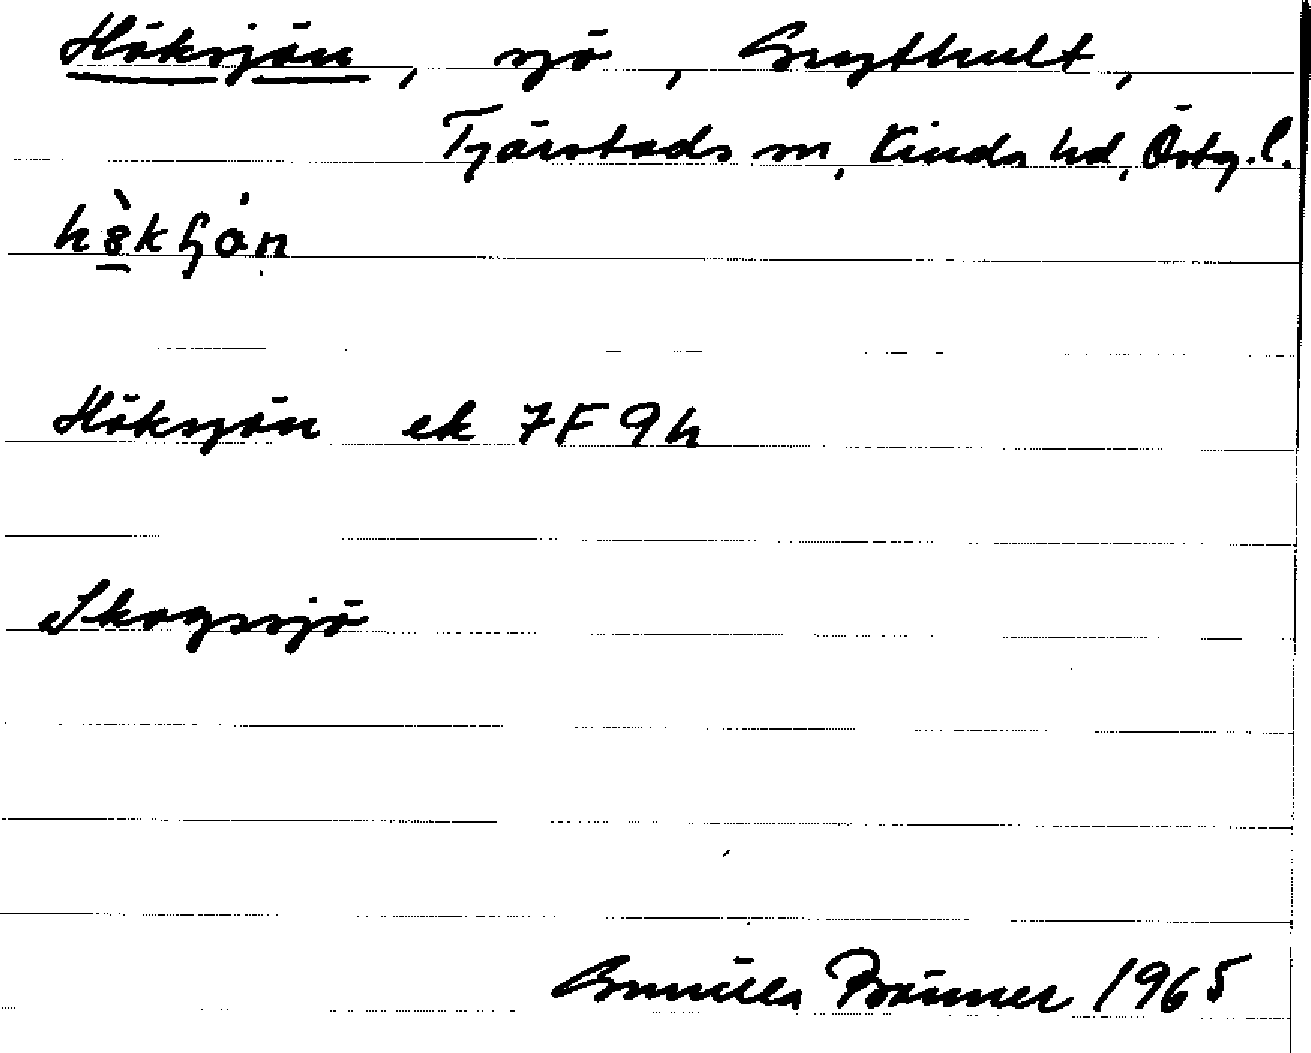 Höksjön, sjö, Grythult,
Tjärstads sn, Kinda hd, Östg. l.
Höksjön ek 7F9h
Skogssjö
Gunilla Bränner 1965